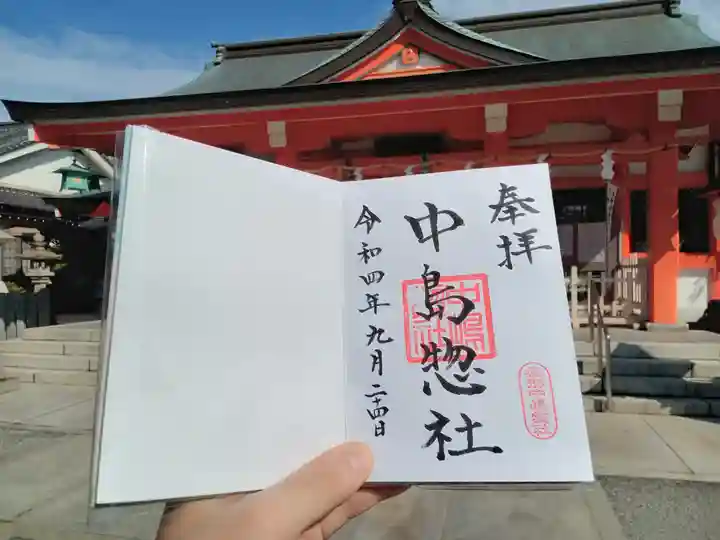 奉拝
中島惣社
令和四年九月二十四日